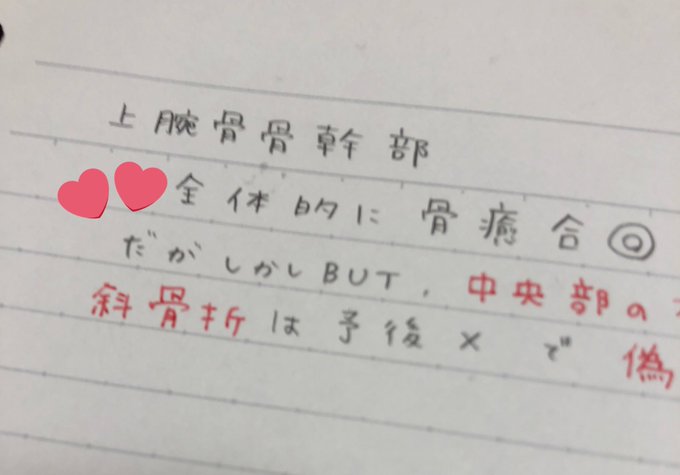 上腕骨骨幹部
全体的に骨癒合◎
だがしかしBUT, 中央部の
斜骨折は予後×で 偽